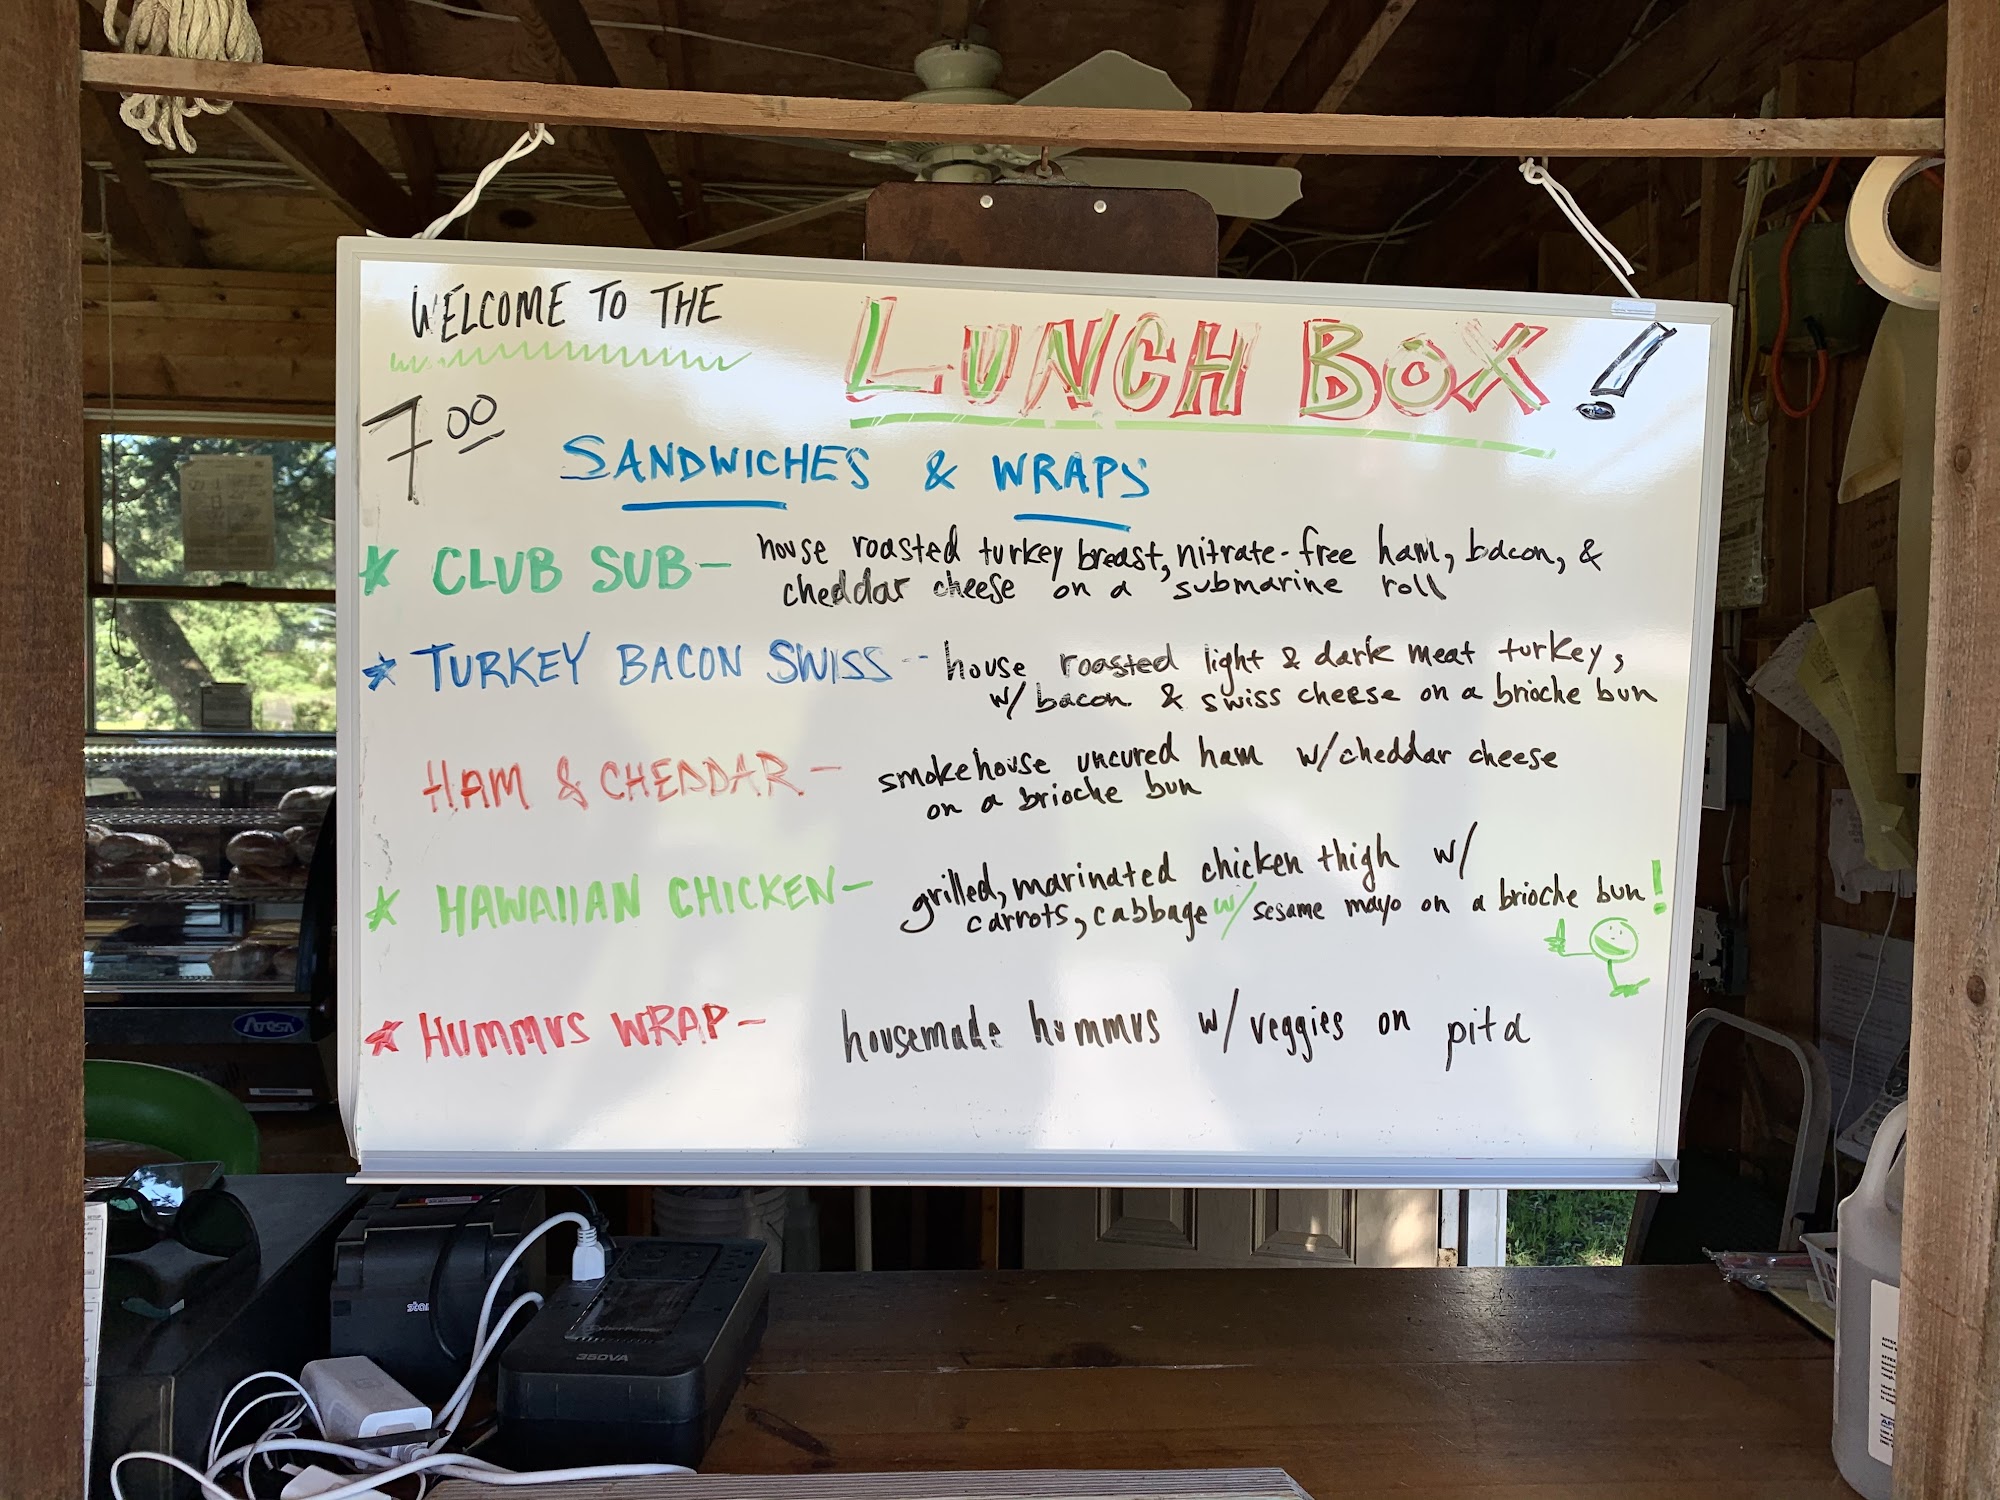 WELCOME TO THE LUNCH BOX!
7 00
SANDWICHES & WRAPS
CLUB SUB - house roasted turkey breast, nitrate-free ham, bacon, &
cheddar cheese on a submarine roll
TURKEY BACON SWISS -- house roasted light & dark meat turkey,
w/ bacon & swiss cheese on a brioche bun
HAM & CHEDDAR - smokehouse uncured ham w/cheddar cheese
on a brioche bun
HAWAIIAN CHICKEN - grilled, marinated chicken thigh w/
carrots, cabbage w/ sesame mayo on a brioche bun!
HUMMUS WRAP - housemade hummus w/veggies on pita
ATOSA
star
CyberPower
350VA